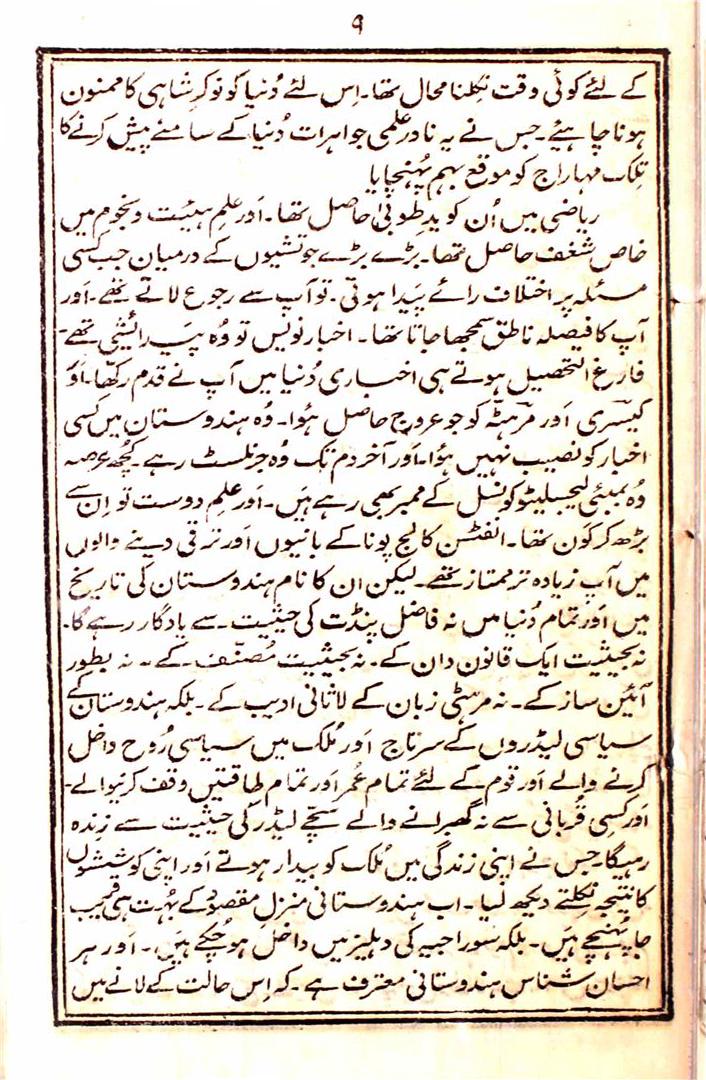 ۹
کے لئے کوئی وقت نکلنا محال تھا۔ اِس لئے دُنیا کو نوکر شاہی کا ممنون
ہونا چاہیئے۔ جس نے یہ نادر علمی جواہرات دُنیا کے سامنے پیش کرنے کا
تلک مہاراج کو موقع بہم پُہنچایا
ریاضی میں اُن کو یدِ طوبیٰ حاصل تھا۔ اَور علمِ ہیئت و نجوم میں
خاص شغف حاصل تھا۔ بڑے بڑے جوتشیوں کے درمیان جب کسی
مسئلہ پر اختلاف رائے پَیدا ہوتی۔ تو آپ سے رجوع لاتے تھے۔ اَور
آپ کا فیصلہ ناطق سمجھا جاتا تھا۔ اخبار نویس تو وُہ پَیدائیشی تھے
فارغ التحصیل ہوتے ہی اخباری دُنیا میں آپ نے قدم رکھا۔ اَور
کیسری اَور مرہٹہ کو جو عروج حاصل ہوُا۔ وُہ ہندوستان میں کسی
اخبار کو نصیب نہیں ہوُا۔ اَور آخر دم تک وُہ جرنلسٹ رہے۔ کُچھ عرصہ
وُہ بمبئی لیجسلیٹو کونسل کے ممبر بھی رہے ہیں۔ اَور علم دوست تو اِن سے
بڑھ کر کَون تھا۔ انفٹسن کالج پونا کے بانیوں اَور ترقی دینے والوں
میں آپ زیادہ تر ممتاز تھے۔ لیکن ان کا نام ہندوستان کی تاریخ
میں اَور تمام دُنیا میں نہ فاضل پنڈت کی حیثیت سے یادگار رہے گا۔
نہ بحیثیت ایک قانون دان کے۔ نہ بحیثیت مُصنّف کے۔ نہ بطور
آئین ساز کے۔ نہ مرہٹی زبان کے لاثانی ادیب کے۔ بلکہ ہندوستان کے
سیاسی لیڈروں کے سرتاج اَور مُلک میں سیاسی رُوح داخل
کرنے والے اَور قوم کے لئے تمام عُمر اَور تمام طاقتیں وقف کرنیوالے۔
اَور کسی قُربانی سے نہ گھبرانے والے سچّے لیڈر کی حیثیت سے زِندہ
رہیگا۔ جس نے اپنی زندگی میں مُلک کو بیدار ہوتے اَور اپنی کوشِشوں
کا نتیجہ نِکلتے دیکھ لیا۔ اب ہندوستانی منزلِ مقصود کے بُہت ہی قریب
جا پُہنچے ہیَں۔ بلکہ سَوراجیہ کی دہلیز میں داخل ہو چُکے ہیَں۔ اَور ہر
احسان شناس ہندوستانی معترف ہے۔ کہ اِس حالت کے لانے میں